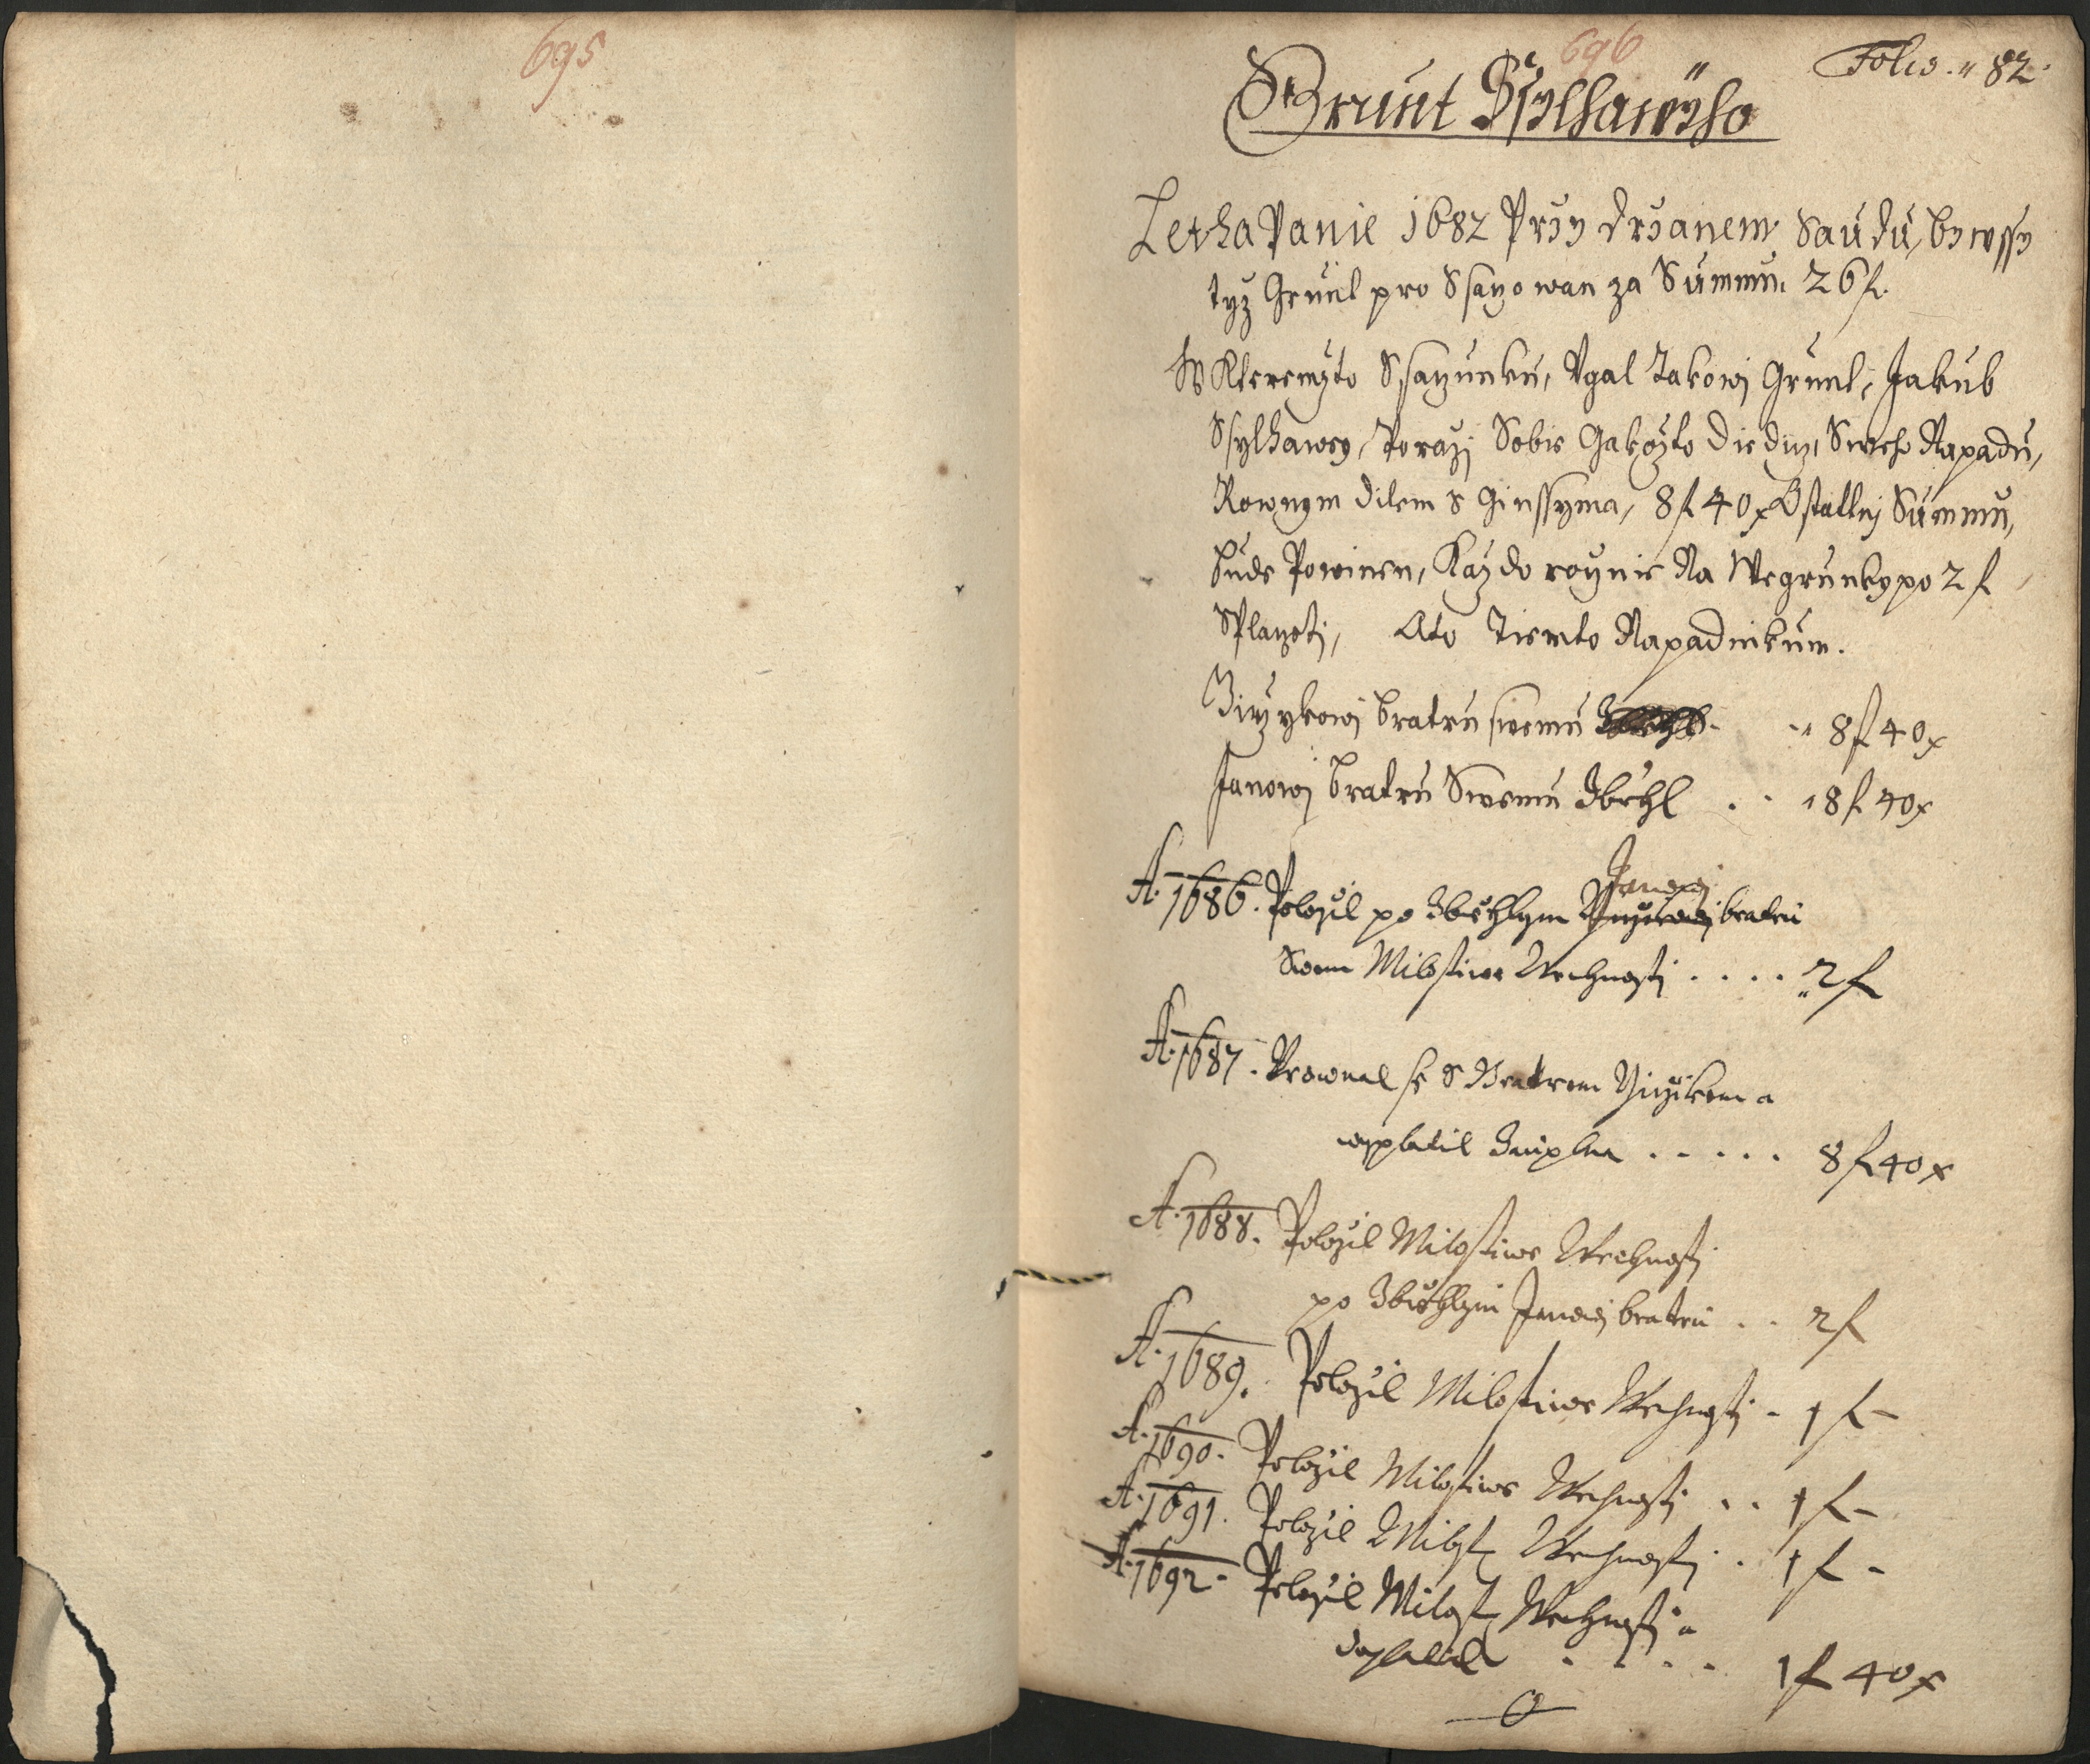 695
696
Folio. 82.
Grunt Ssylhaweho
Letha Panie 1682 Przy drzanem Saudu, bywssy
tyz Grunt pro Ssaczowan za Summu. 26 f.
W Kteremzto Ssaczunku, Vgal Takowj Grunt, Jakub
Ssylhawey, Porazy Sobie Gakozto Diedicz, Sweho Napadu,
Rownym dilem s Ginssyma, 8 f 40 x Ostattnj Summu,
bude Powinen, Kazdorocznie Na Wegrunky po 2 f
Splaczeti, Ato Tiemto Napadnikum.
Jirzykowj bratru swemu 8 f 40 x
Janowj bratru Swemu Zbiehl . . 8 f 40 x
A. 1686. Polozil po Zbiehlym Janowj bratru
Swem Milostiwe Wrchnosti . . . . 2 f
A. 1687. Porownal se s Bratrem Jirzikem a
wyplatil Zauplna . . . . . 8 f 40 x
A. 1688. Polozil Milostiwe Wrchnosti
po Zbiehlym Janowj bratru . . 2 f
A. 1689. Polozil Milostiwe Wrchnosti - 1 f -
A. 1690. Polozil Milostiwe Wrchnosti . . 1 f -
A. 1691. Polozil Milost Wrchnosti . 1 f -
A. 1692. Polozil Milost Wrchnosti a
doplatil . . . . 1 f 40 x